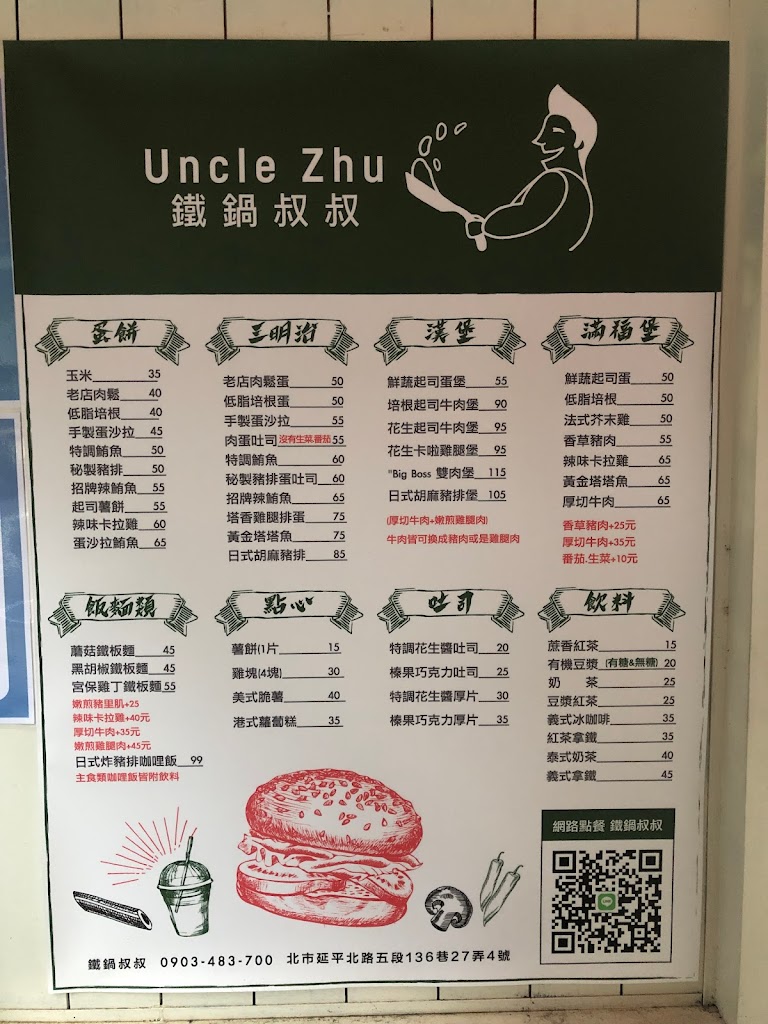 Uncle Zhu
鐵鍋叔叔
蛋餅
玉米 35
老店肉鬆 40
低脂培根 40
手製蛋沙拉 45
特調鮪魚 50
秘製豬排 50
招牌辣鮪魚 55
起司薯餅 55
辣味卡拉雞 60
蛋沙拉鮪魚 65
三明治
老店肉鬆蛋 50
低脂培根蛋 50
手製蛋沙拉 55
肉蛋吐司 沒有生菜.番茄 55
特調鮪魚 60
秘製豬排蛋吐司 60
招牌辣鮪魚 65
塔香雞腿排蛋 75
黃金塔塔魚 75
日式胡麻豬排 85
漢堡
鮮蔬起司蛋堡 55
培根起司牛肉堡 90
花生起司牛肉堡 95
花生卡啦雞腿堡 95
"Big Boss 雙肉堡 115
日式胡麻豬排堡 105
(厚切牛肉+嫩煎雞腿肉)
牛肉皆可換成豬肉或是雞腿肉
滿福堡
鮮蔬起司蛋 50
低脂培根 50
法式芥末雞 50
香草豬肉 55
辣味卡拉雞 65
黃金塔塔魚 65
厚切牛肉 65
香草豬肉+25元
厚切牛肉+35元
番茄.生菜+10元
飯麵類
蘑菇鐵板麵 45
黑胡椒鐵板麵 45
宮保雞丁鐵板麵 55
嫩煎豬里肌+25
辣味卡拉雞+40元
厚切牛肉+35元
嫩煎雞腿肉+45元
日式炸豬排咖哩飯 99
主食類咖哩飯皆附飲料
點心
薯餅(1片 15
雞塊(4塊) 30
美式脆薯 40
港式蘿蔔糕 35
吐司
特調花生醬吐司 20
榛果巧克力吐司 25
特調花生醬厚片 30
榛果巧克力厚片 35
飲料
蔗香紅茶 15
有機豆漿 (有糖&無糖) 20
奶 茶 25
豆漿紅茶 25
義式冰咖啡 35
紅茶拿鐵 35
泰式奶茶 40
義式拿鐵 45
網路點餐 鐵鍋叔叔
鐵鍋叔叔 0903-483-700 北市延平北路五段136巷27弄4號